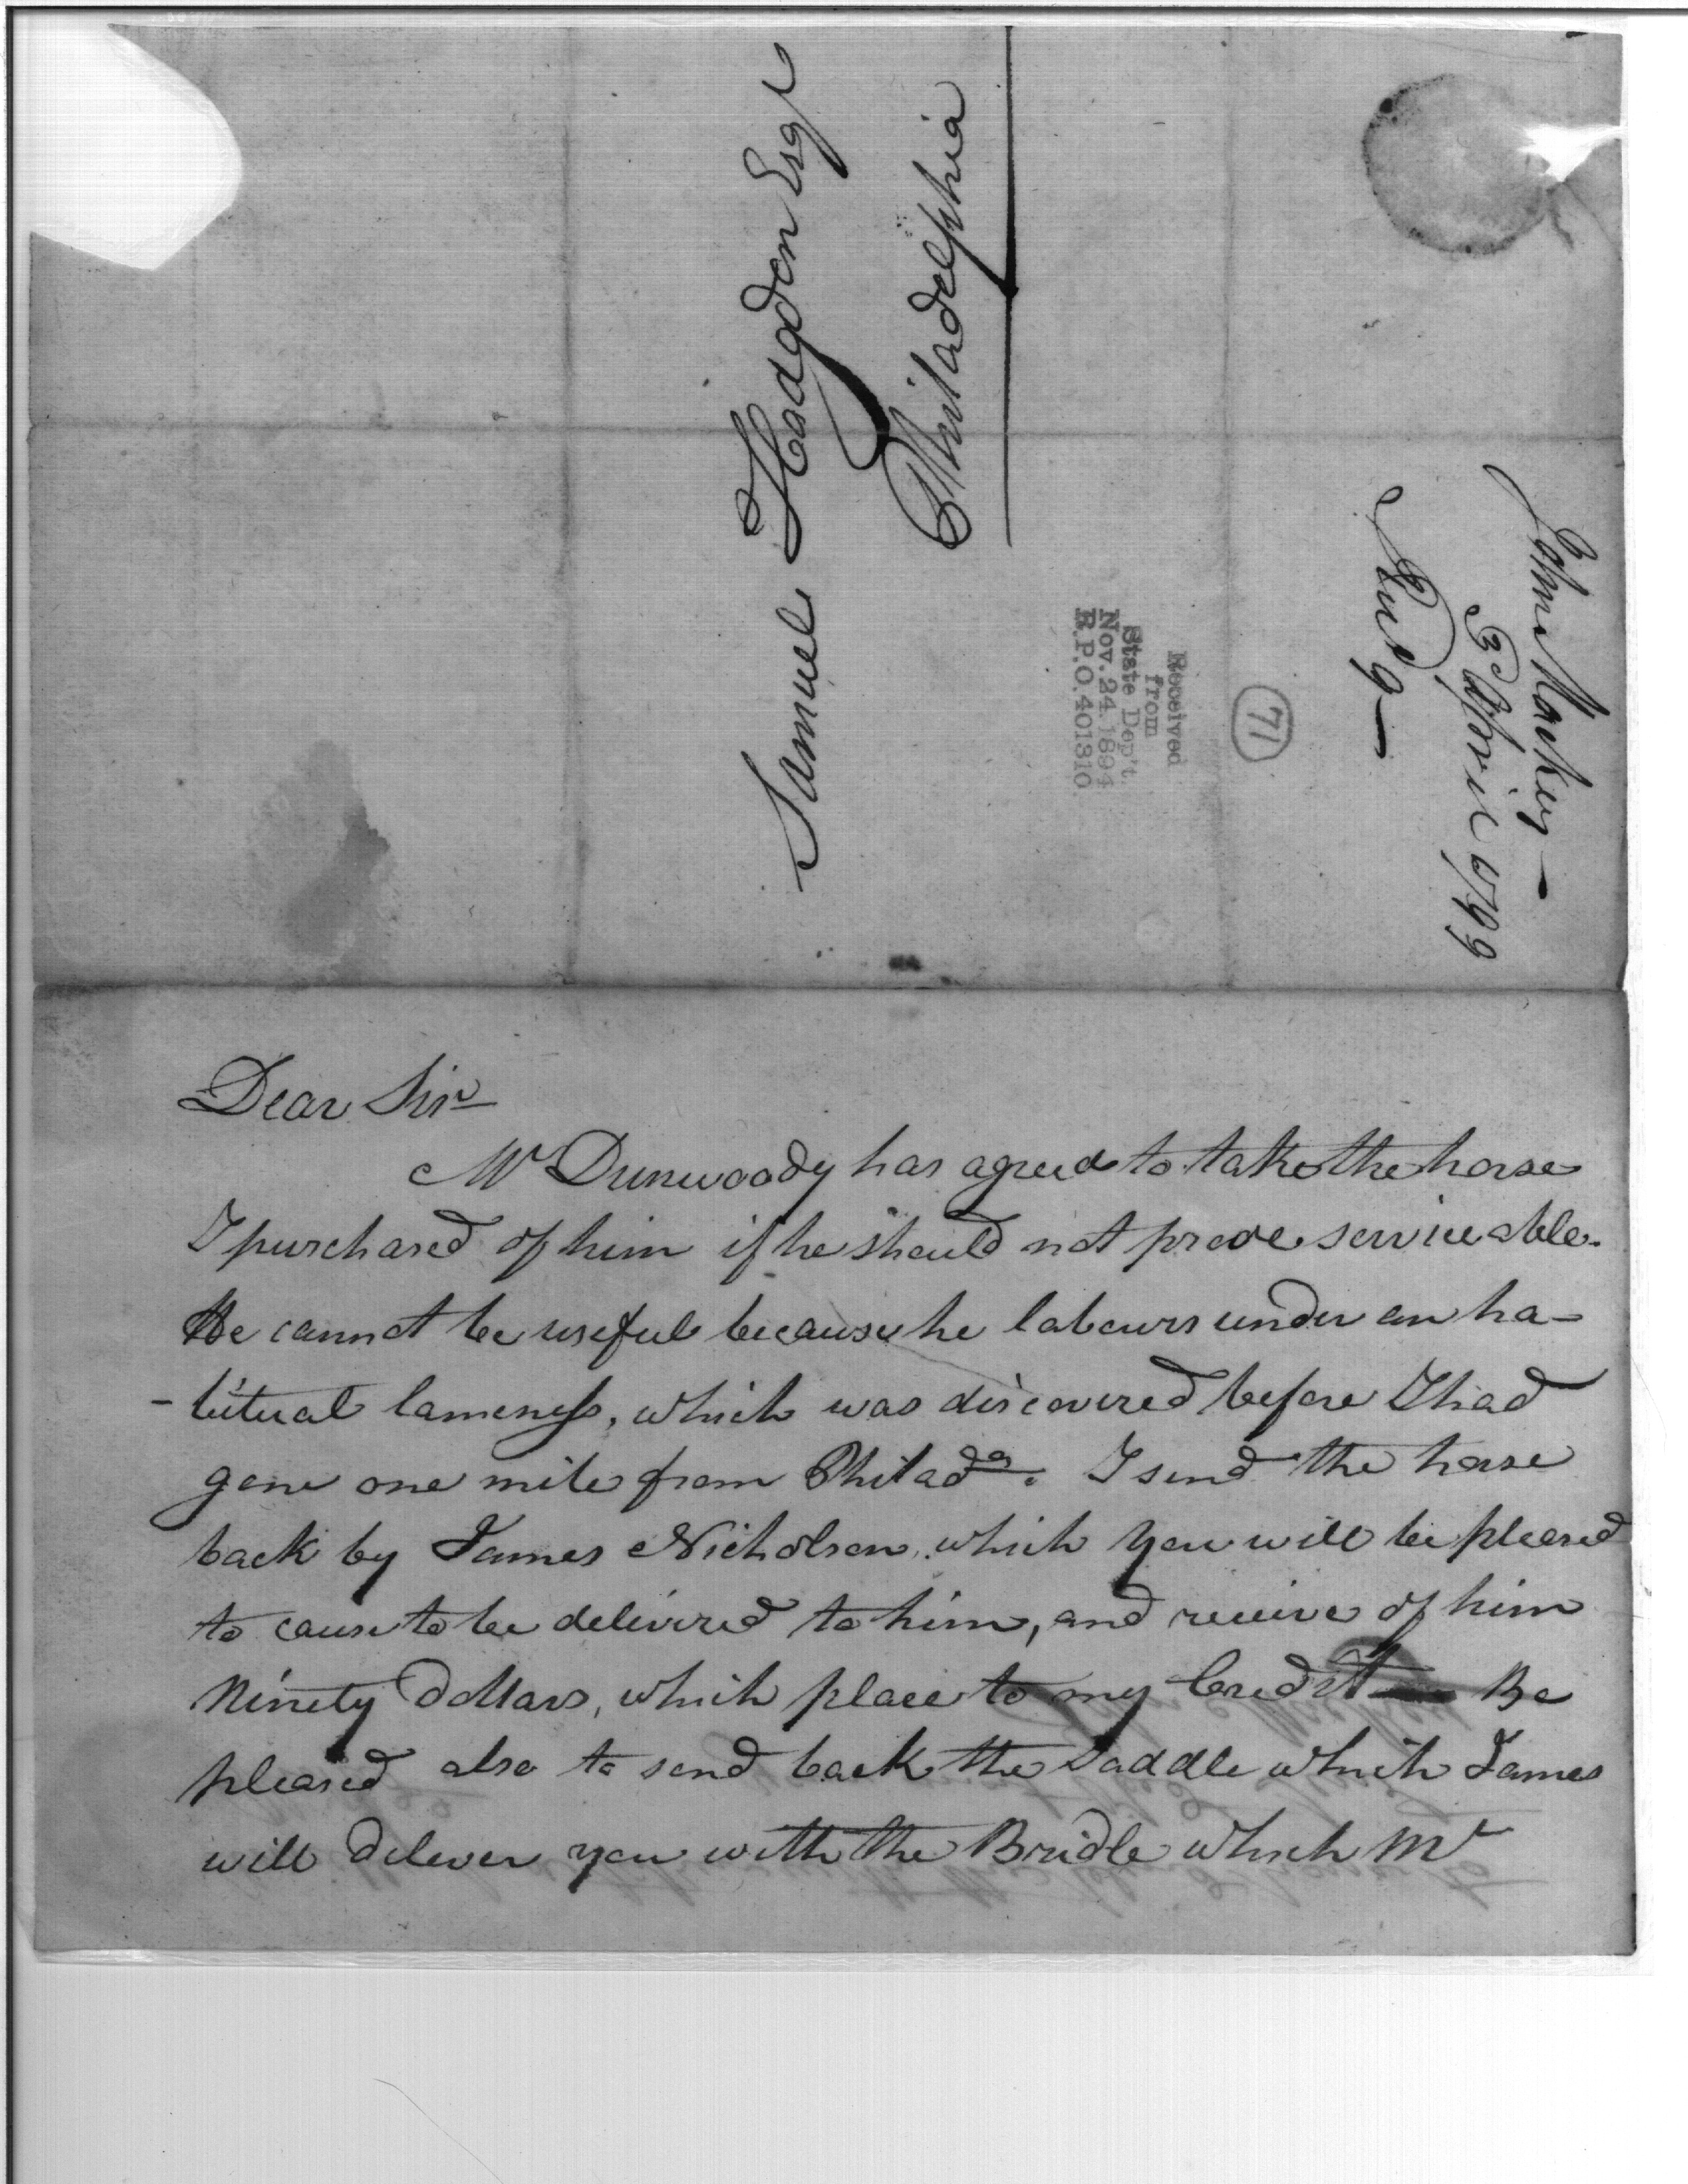 Samuel Hodgdon Esqr
Philadelphia
Received
from
State Dep't
Nov. 24. 1894
R.P.O. 401310.
71
John Markey —
3d April 1799
9 —
Dear Sir
Mr Dunwoody has agreed to take the horse
I purchased of him if he should not prove serviceable.
He cannot be useful because he labours under an ha-
-bitual lameness, which was discovered before I had
gone one mile from Philada. I send the horse
back by James Nicholson, which you will be pleased
to cause to be delivered to him, and receive of him
Ninety Dollars, which place to my Credit — Be
pleased also to send back the Saddle which James
will deliver you with the Bridle which Mr